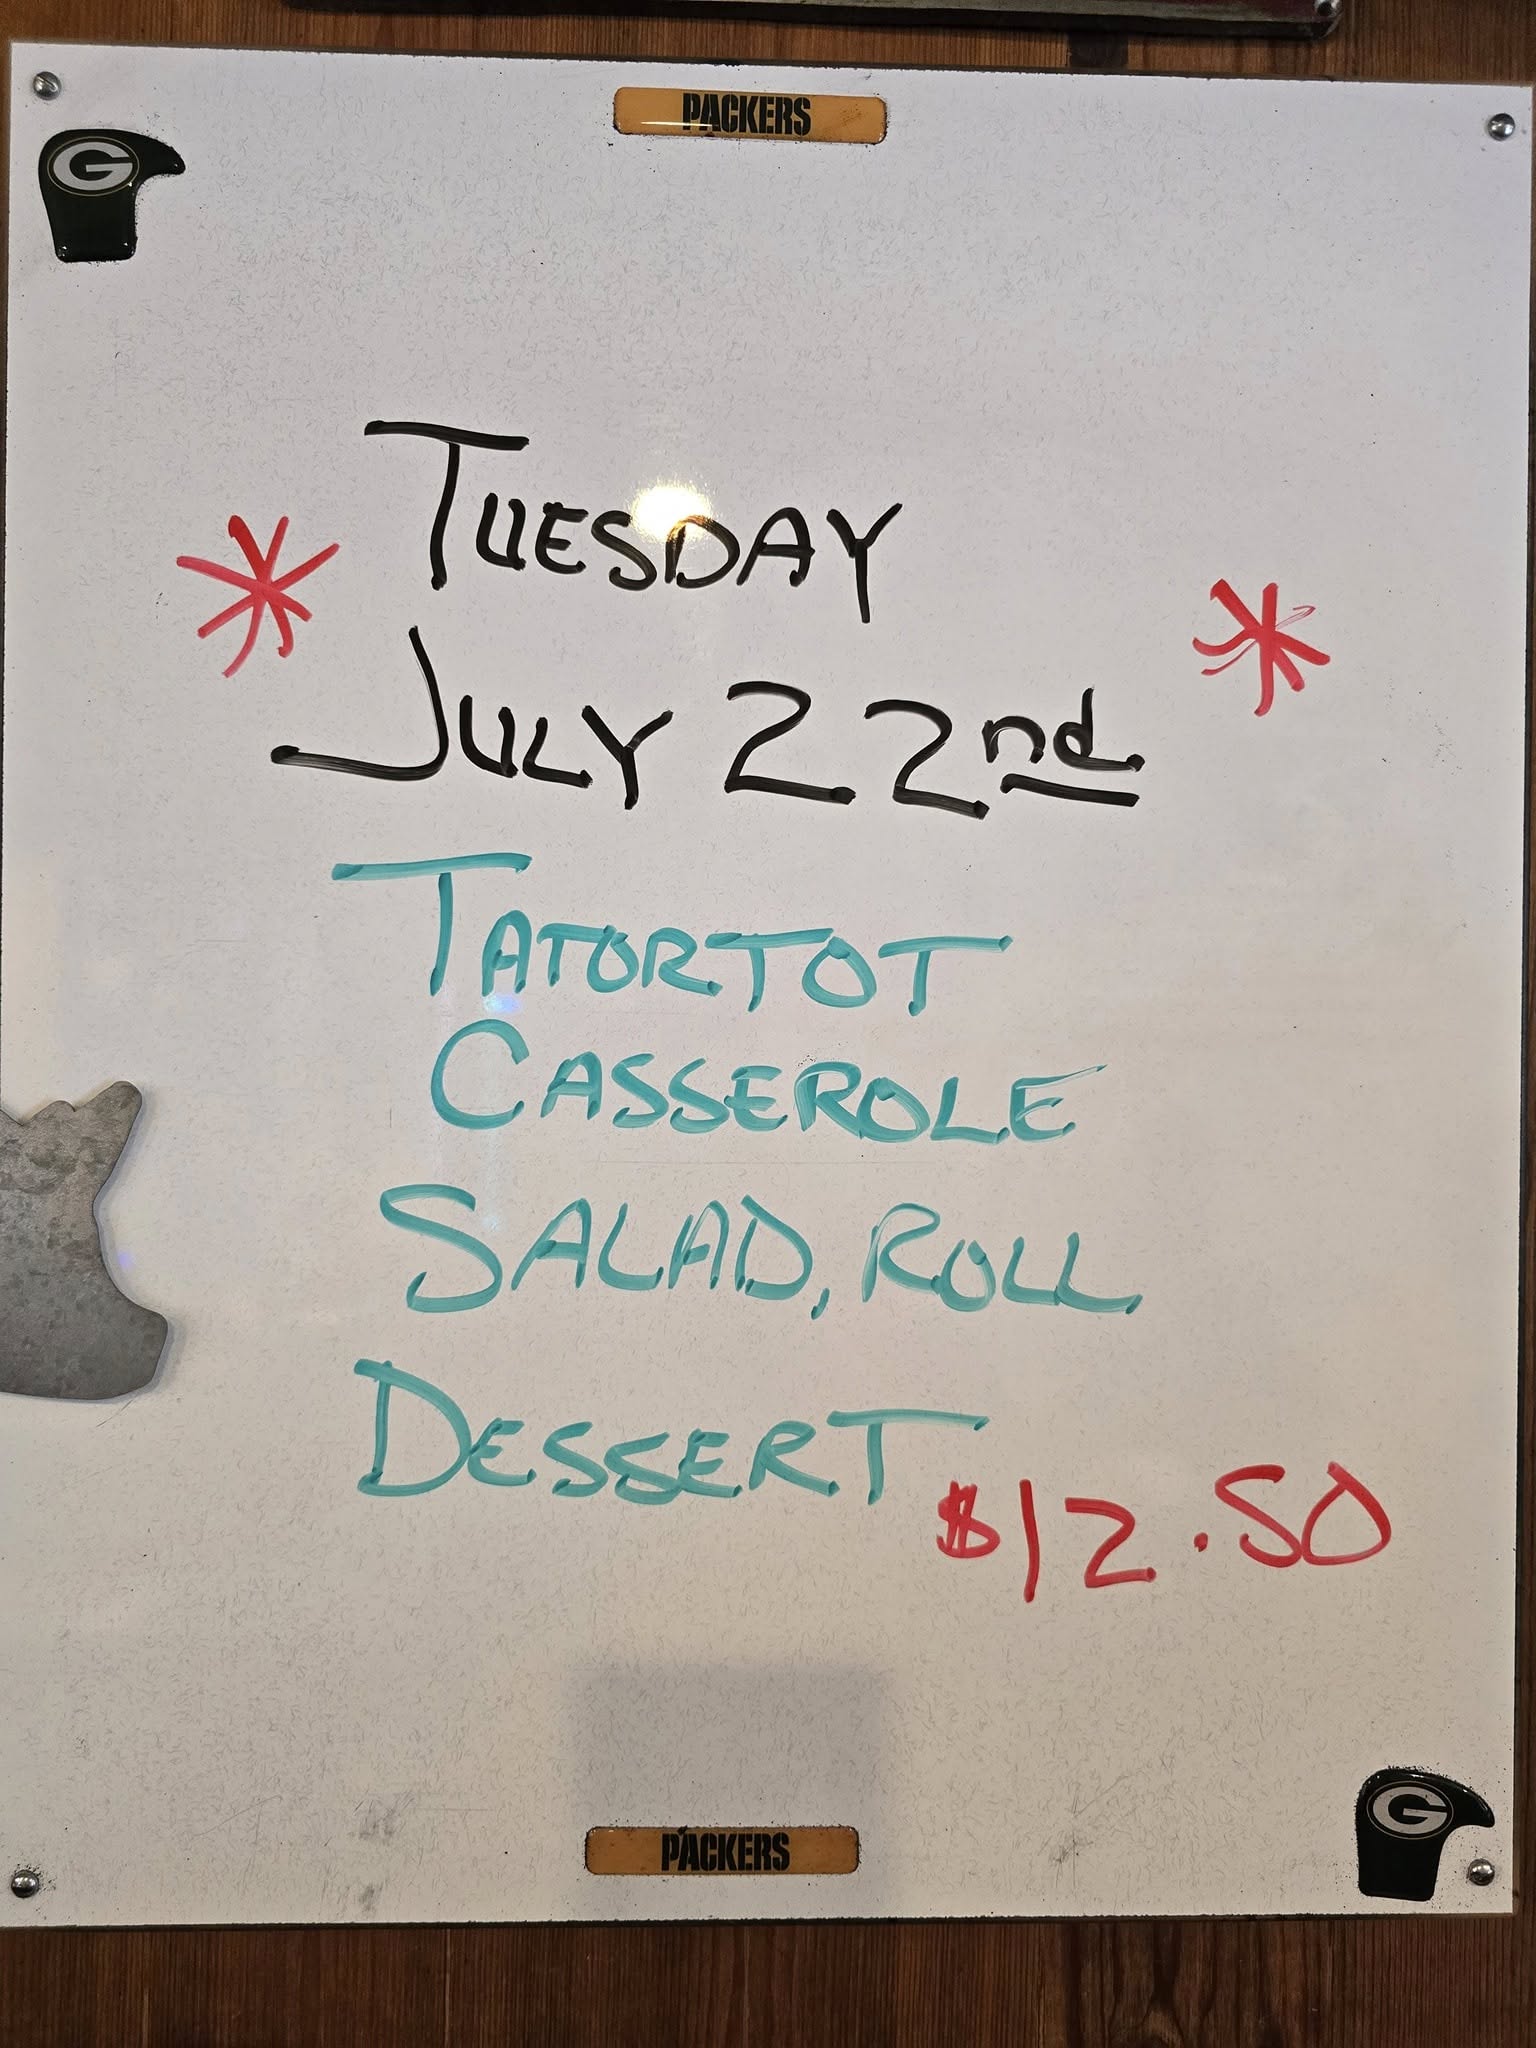 PACKERS
G
TUESDAY
JULY 22nd
TATORTOT
CASSEROLE
SALAD, ROLL
DESSERT
$12.50
PACKERS
G